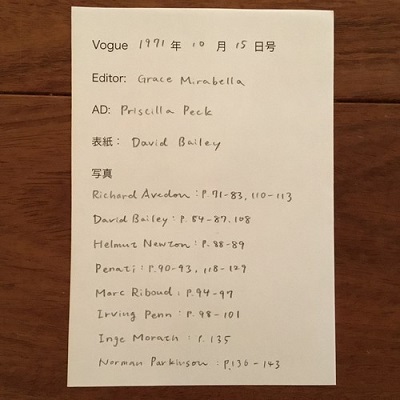 Vogue 1971 年 10 月 15 日号
Editor: Grace Mirabella
AD: Priscilla Peck
表紙： David Bailey
写真
Richard Avedon : p.71-83, 110-113
David Bailey : p.84-87, 108
Helmut Newton : p.88-89
Penati : p.90-93, 118-129
Marc Riboud : p.94-97
Irving Penn : p.98-101
Inge Morath : p.135
Norman Parkinson : p.136-143